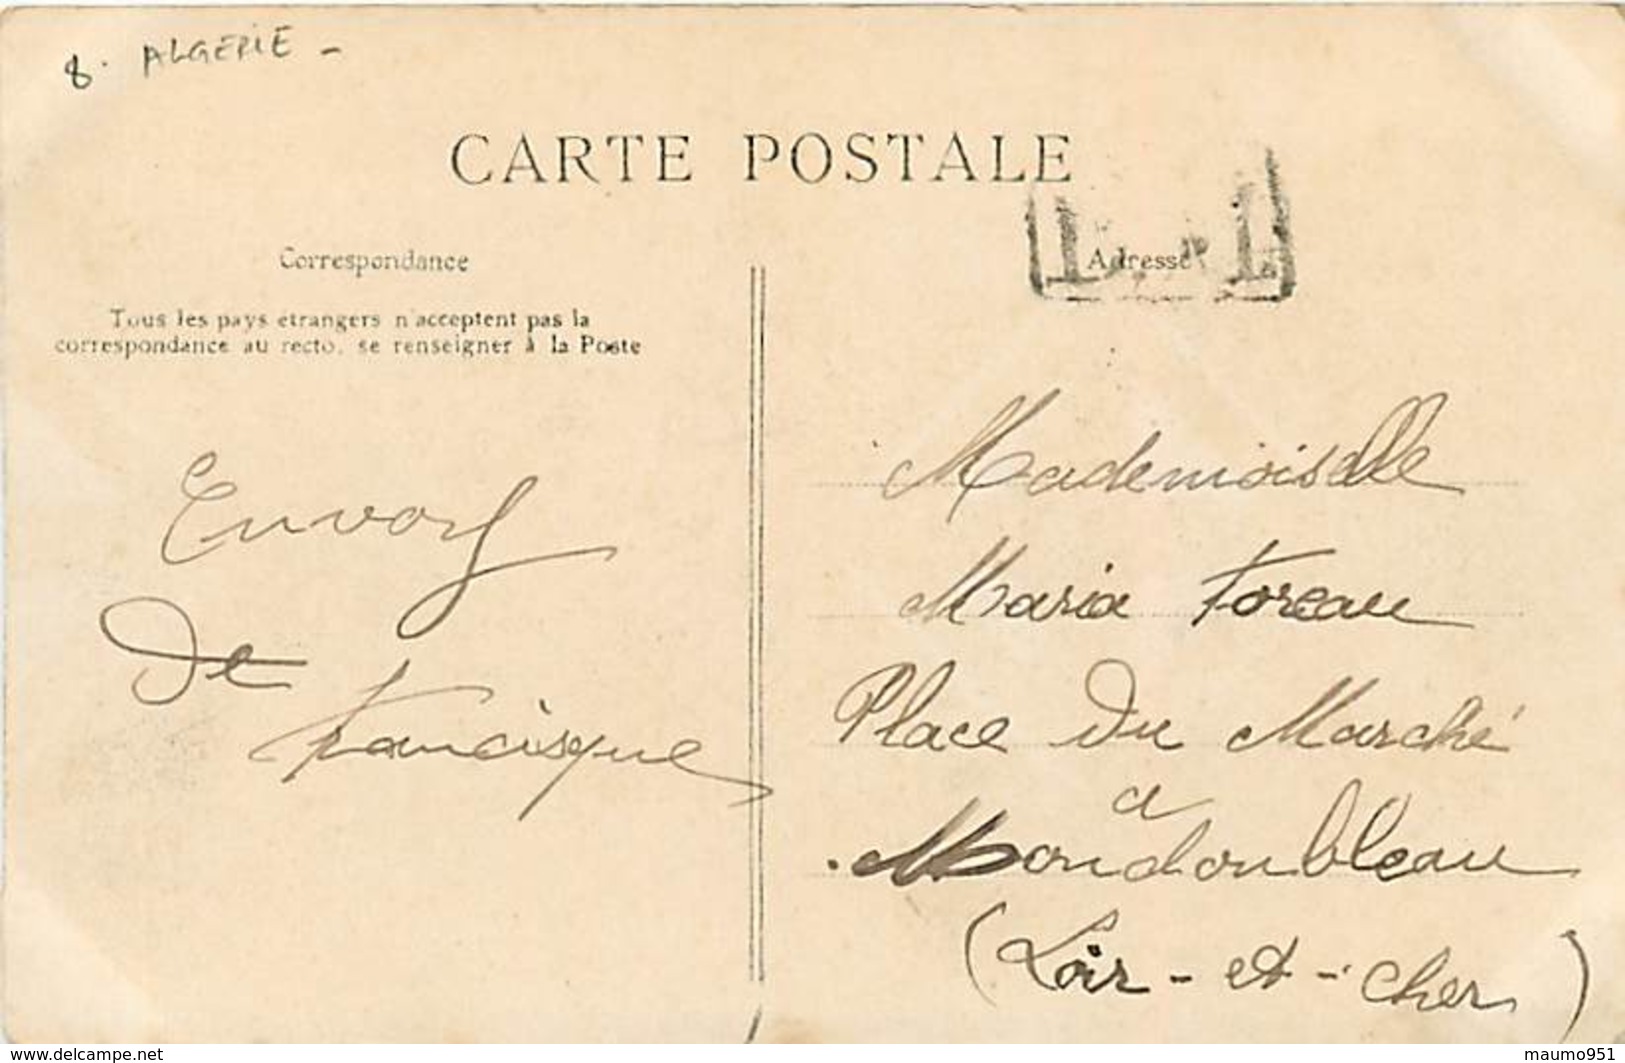 8. ALGERIE -
CARTE POSTALE
Correspondance
Adresse
Tous les pays etrangers n'acceptent pas la
correspondance au recto, se renseigner à la Poste
Envoy
De
Francisque
Mademoiselle
Maria Foreau
Place Du Marché
a
Mondoubleau
(Loir-et-Cher)
www.delcampe.net
maumo951